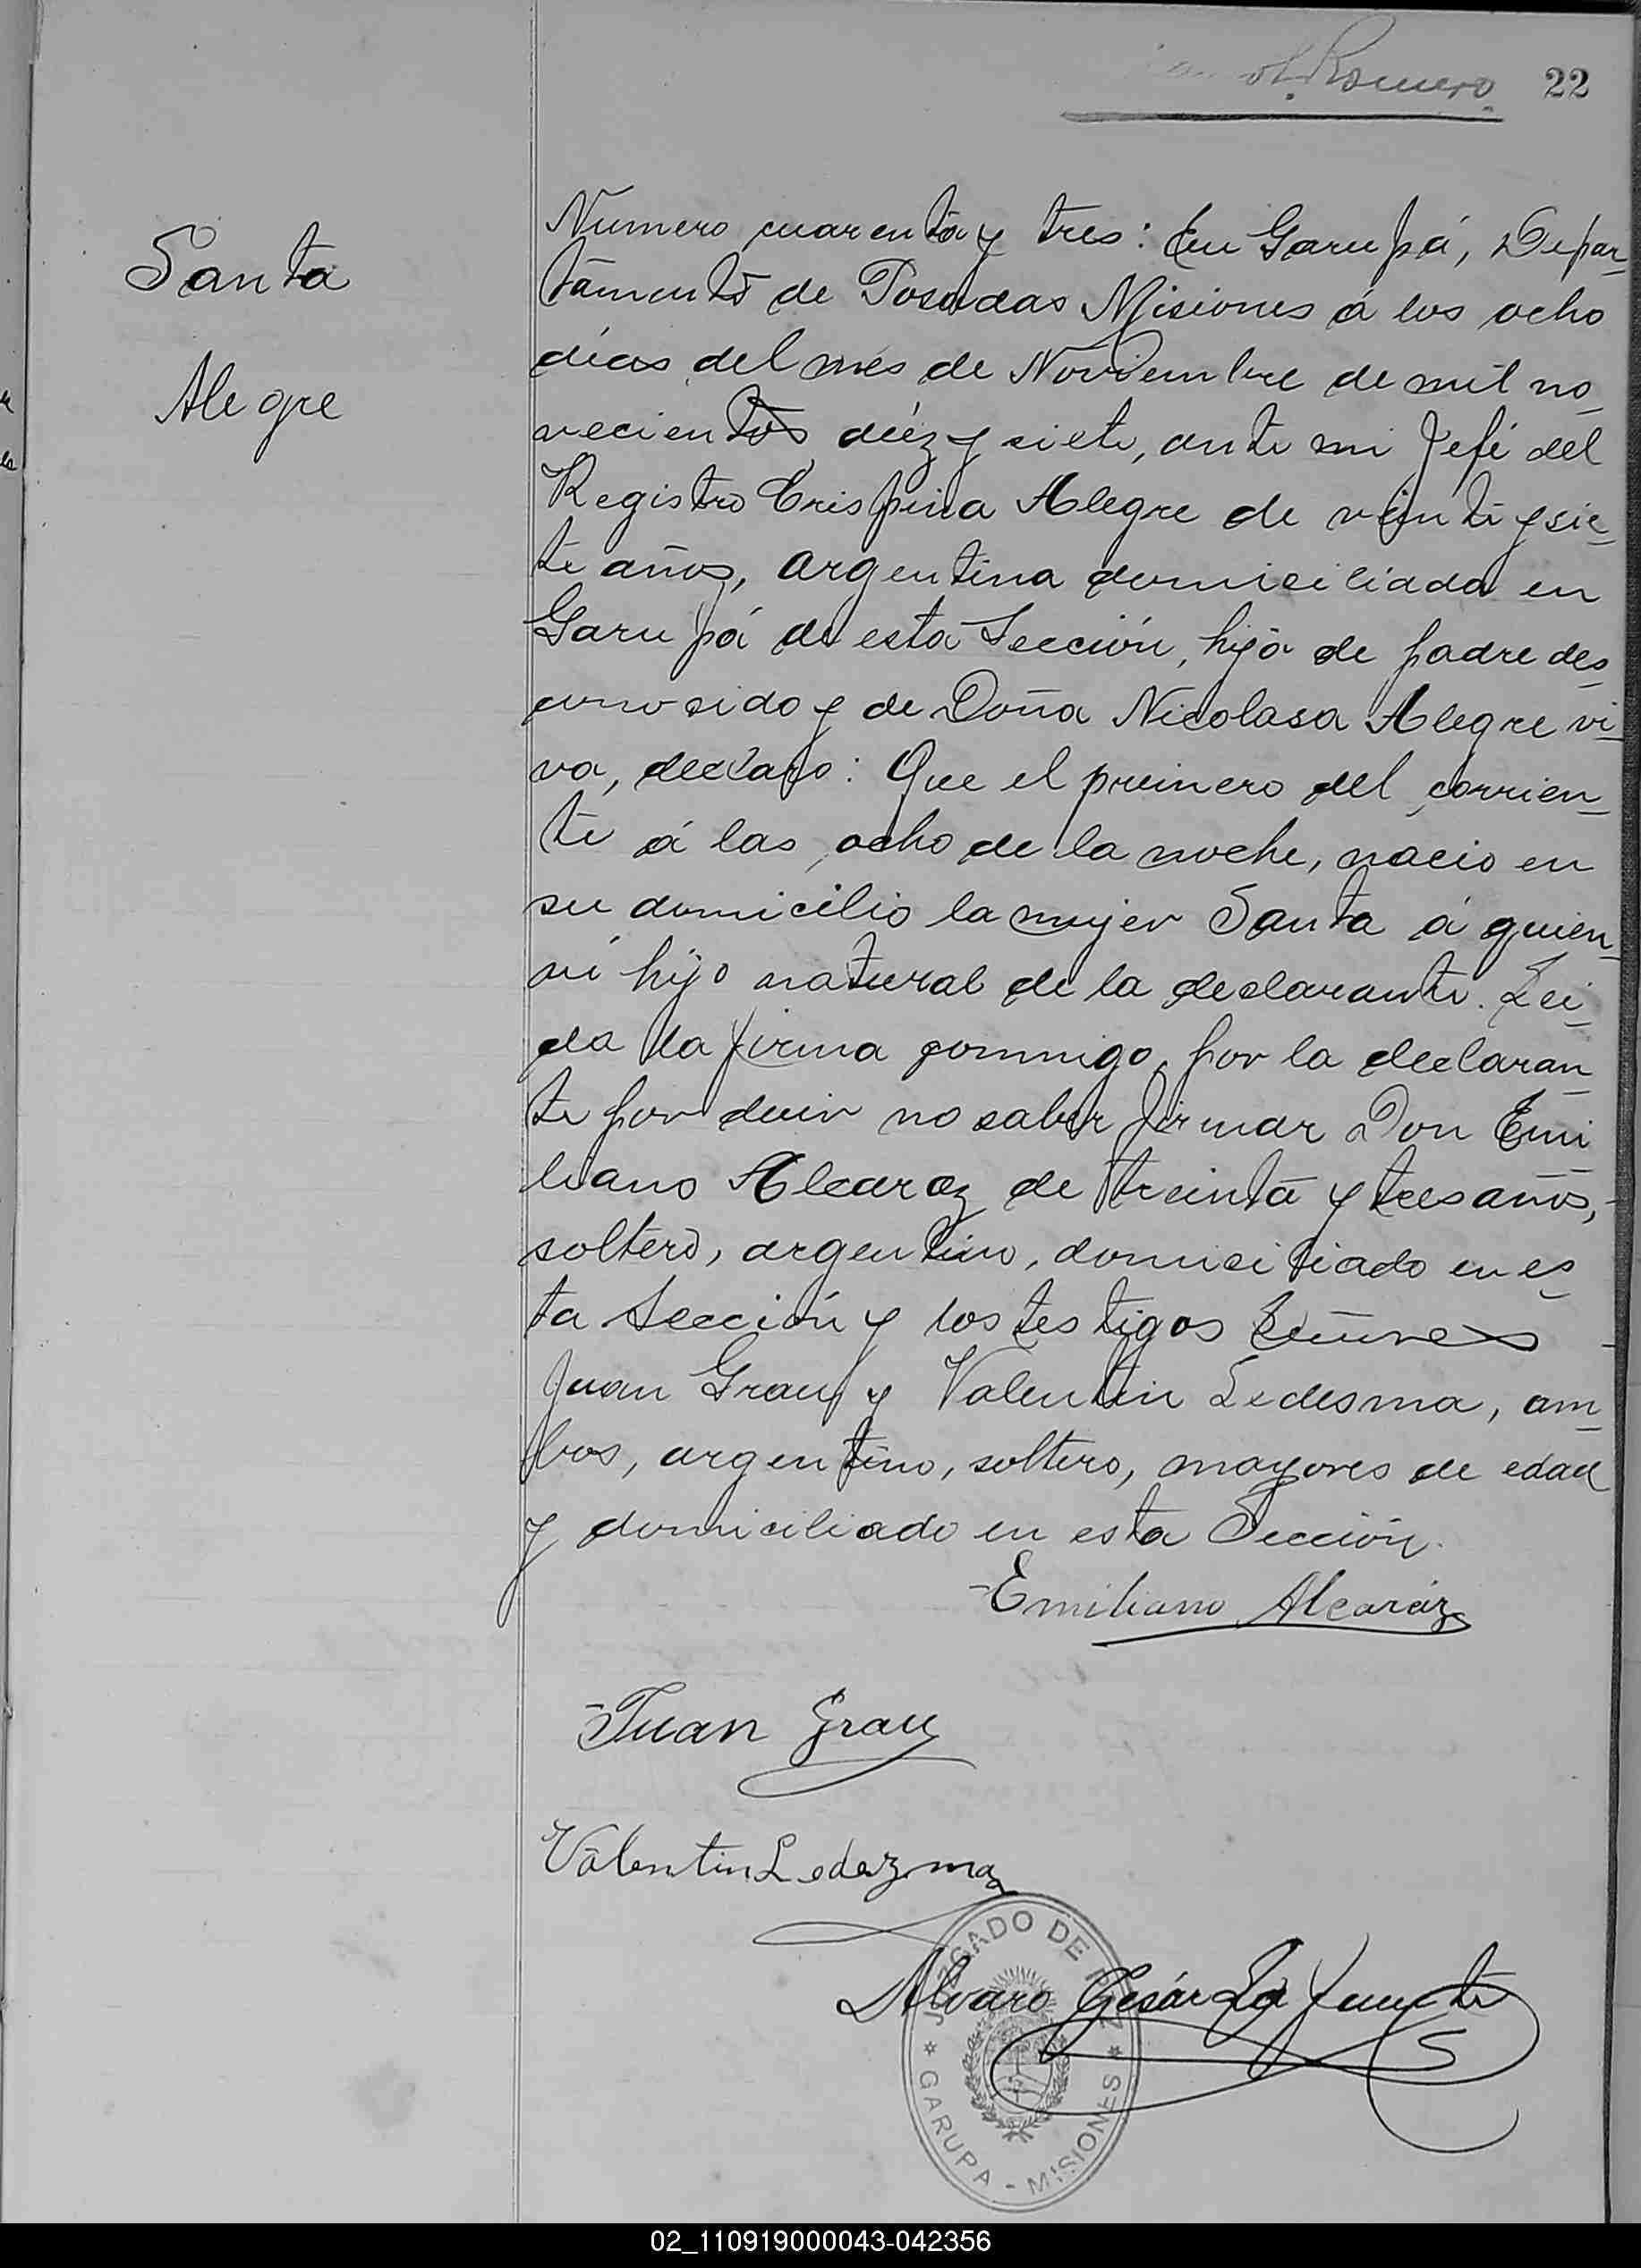 A. Romero. 22
Santa
Alegre
Numero cuarenta y tres: En Garupá, Depar-
tamento de Posadas Misiones á los ocho
dias del mes de Noviembre de mil no-
vecientos diéz y siete, ante mi Jefé del
Registro Crispina Alegre de veinti y sie-
te años, argentina domiciliada en
Garupá de esta Sección, hija de padre des-
conosido y de Doña Nicolasa Alegre vi-
va, declaro: Que el primero del corrien-
te á las ocho de la noche, nacio en
su domicilio la mujer Santa á quien
vi hijo natural de la declarante. Lei-
da la firma conmigo, por la declaran-
te por decir no saber firmar Don Emi
liano Alcaraz de treinta y tres años,
soltero, argentino, domiciliado en es-
ta Sección y los testigos Señores
Juan Grau y Valentin Ledesma, am-
bos, argentino, soltero, mayores de edad
y domiciliado en esta Sección.
Emiliano Alcaráz
Juan Grau
Valentin Ledezma
Alvaro Cesár La Fuente
JUZGADO DE PAZ
* GARUPA - MISIONES *
02_110919000043-042356